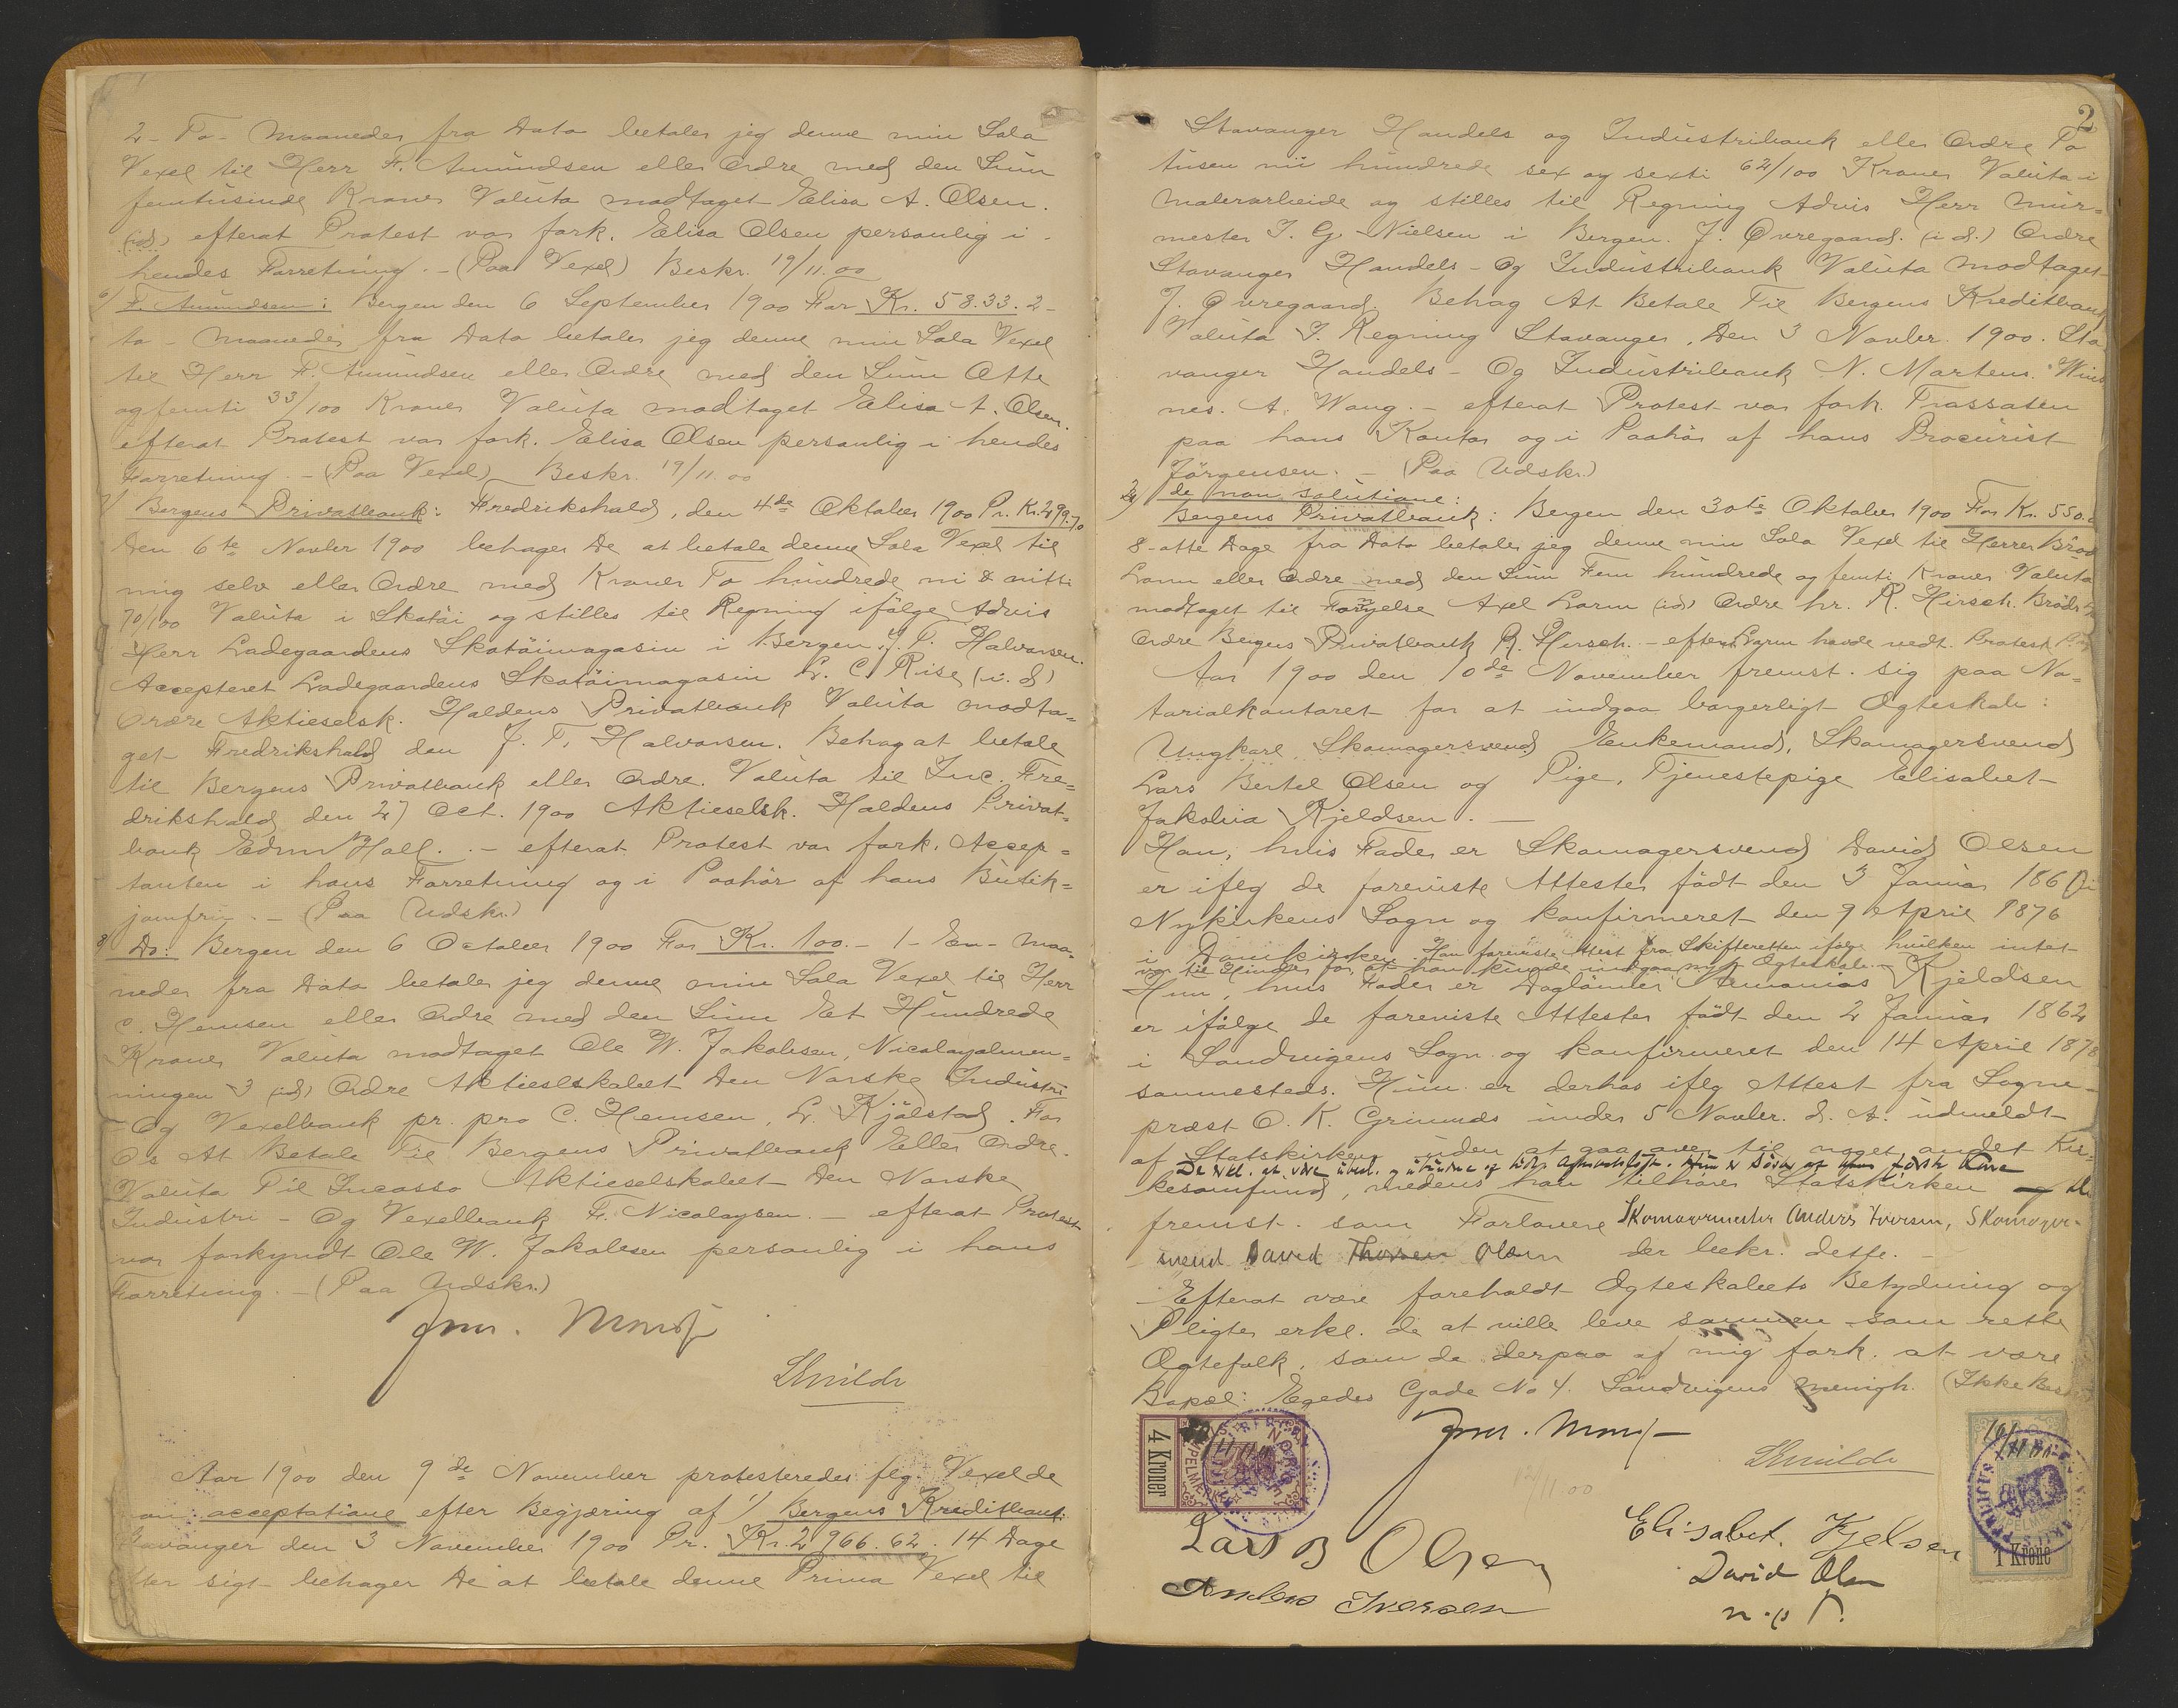 2 - To - Maaneder fra Dato betaler jeg denne min Sola
Vexel til Herr F. Amundsen eller Ordre med den Sum
femtusinde Kroner Valuta modtaget Elisa A. Olsen.
(id) efterat Protest var fork. Elisa Olsen personlig i
hendes Forretning. - (Paa Vexel) Beskr. 19/11.00
6/ F. Amundsen: Bergen den 6 September 1900 For Kr. 58.33. 2-
to - Maaneder fra Dato betaler jeg denne min Sola Vexel
til Herr F. Amundsen eller Ordre med den Sum Otte
og femti 33/100 Kroner Valuta modtaget Elisa A. Olsen.
efterat Protest var fork. Elisa Olsen personlig i hendes
Forretning. - (Paa Vexel) Beskr. 19/11.00
7/ Bergens Privatbank: Fredrikshald, den 4de Oktober 1900 Pr. Kr. 299.70
Den 6te Novbr 1900 behager De at betale denne Sola Vexel til
mig selv eller Ordre med Kroner To hundrede ni & nitti
70/100 Valuta i Skotöi og stilles til Regning ifölge Advis
Herr Ladegaardens Skotöimagasin i Bergen. J. T. Halvorsen.
Accepteret Ladegaardens Skotöimagasin L. C. Rise (i. d)
Ordre Aktieselsk. Haldens Privatbank Valuta modta=
get Fredrikshald den J. T. Halvorsen. Behag at betale
til Bergens Privatbank eller Ordre. Valuta til Inc. Fre=
drikshald den 27 Oct. 1900 Aktieselsk. Haldens Privat=
bank Edm Hall. - efterat Protest var fork. Accep=
tanten i hans Forretning og i Paahör af hans Butik=
jomfru. - (Paa Udskr.)
8/ Do: Bergen den 6 October 1900 For Kr. 100. - 1 - En - Maa=
neder fra Dato betaler jeg denne min Sola Vexel til Herr
C. Hemsen eller Ordre med den Sum Et Hundrede
Kroner Valuta modtaget Ole W. Jakobsen, Nicolayalmen=
ningen 3 (id) Ordre Aktieselskabet Den Norske Industri
- Og Vexelbank pr. pro C. Hemsen, L. Kjölstad. For
Os At Betale Til Bergens Privatbank Eller Ordre.
Valuta Til Incasso Aktieselskabet Den Norske
Industri - Og Vexelbank F. Nicolaysen. - efterat Protest
var forkyndt Ole W. Jakobsen personlig i hans
Forretning. - (Paa Udskr.)
Aar 1900 den 9de November protesteredes flg. Vexel de
non acceptatione efter Begjæring af 1/ Bergens Kreditbank:
Stavanger den 3 November 1900 Pr. Kr. 2966.62. 14 Dage
efter sigt behager De at betale denne Prima Vexel til
2
Stavanger Handels og Industribank eller Ordre To
tusen ni hundrede sex og sexti 62/100 Kroner Valuta i
Malerarbeide og stilles til Regning Advis Herr Mur=
mester J. G. Nielsen i Bergen. J. Øvregaard. (i d.) Ordre
Stavanger Handels - Og Industribank Valuta modtaget
J. Øvregaard. Behag At Betale Til Bergens Kreditbank
Valuta I Regning Stavanger, Den 3 Novbr. 1900. Sta
vanger Handels - Og Industribank N. Martens. Win
nes. A. Wang. - efterat Protest var fork. Trassaten
paa hans Kontor og i Paahör af hans Procurist
Jörgensen. - (Paa Udskr.)
2/ de non solutione:
Bergens Privatbank: Bergen den 30te Oktober 1900 For Kr. 550.
8 - otte Dage fra Dato betaler jeg denne min Sola Vexel til Herrer Bröd
Lorm eller Ordre med den Sum Fem hundrede og femti Kroner Valuta
modtaget til Fornyelse Axel Lorm (id) Ordre hr. R. Hirsch. Brödr
Ordre Bergens Privatbank R. Hirsch. - efterat Lorm havde vedt. Protest
Aar 1900 den 10de November fremst. sig paa No=
tarialkontoret for at indgaa borgerligt Ægteskab:
Ungkarl Skomagersvend Enkemand, Skomagersvend
Lars Bertel Olsen og Pige, Tjenestepige Elisabet
Jakobia Kjeldsen. -
Han, hvis Fader er Skomagersvend David Olsen
er iflg de foreviste Attester födt den 3 Januar 1860 i
Nykirkens Sogn og konfirmeret den 9 April 1876
i Domkirken. Han foreviste Attest fra Skifteretten ifölge hvilken intet
var til Hinder for, at han kunde indgaa nyt Ægteskab. -
Hun, hvis Fader er Daglönner Ananias Kjeldsen
er ifölge de foreviste Attester födt den 2 Januar 1862
i Sandvigens Sogn og konfirmeret den 14 April 1878
sammesteds. Hun er derhos iflg Attest fra Sogne=
præst O. K. Grimnds under 5 Novbr. d. A. udmeldt
af Statskirken uden at gaa over til noget andet Kir=
De erkl. at være ubesl.
kesamfund, medens han tilhörer Statskirken
fremst. som Forlovere Skomagermester Anders Iversen, Skomager-
svend David Olsen der bekr. dette. -
Efterat være foreholdt Ægteskabets Betydning og
Pligter erkl. de at ville leve sammen som rette
Ægtefolk, som de derpaa af mig fork. at være
Bopæl: Egedes Gade No 4. Sandvigens Menigh. (Ikke Besk
4 Kroner
12/11.00
1 Krone
Lars B Olsen
Elisabet. Kjelsen
Anders Iversen
David Olsen
m. p. P.